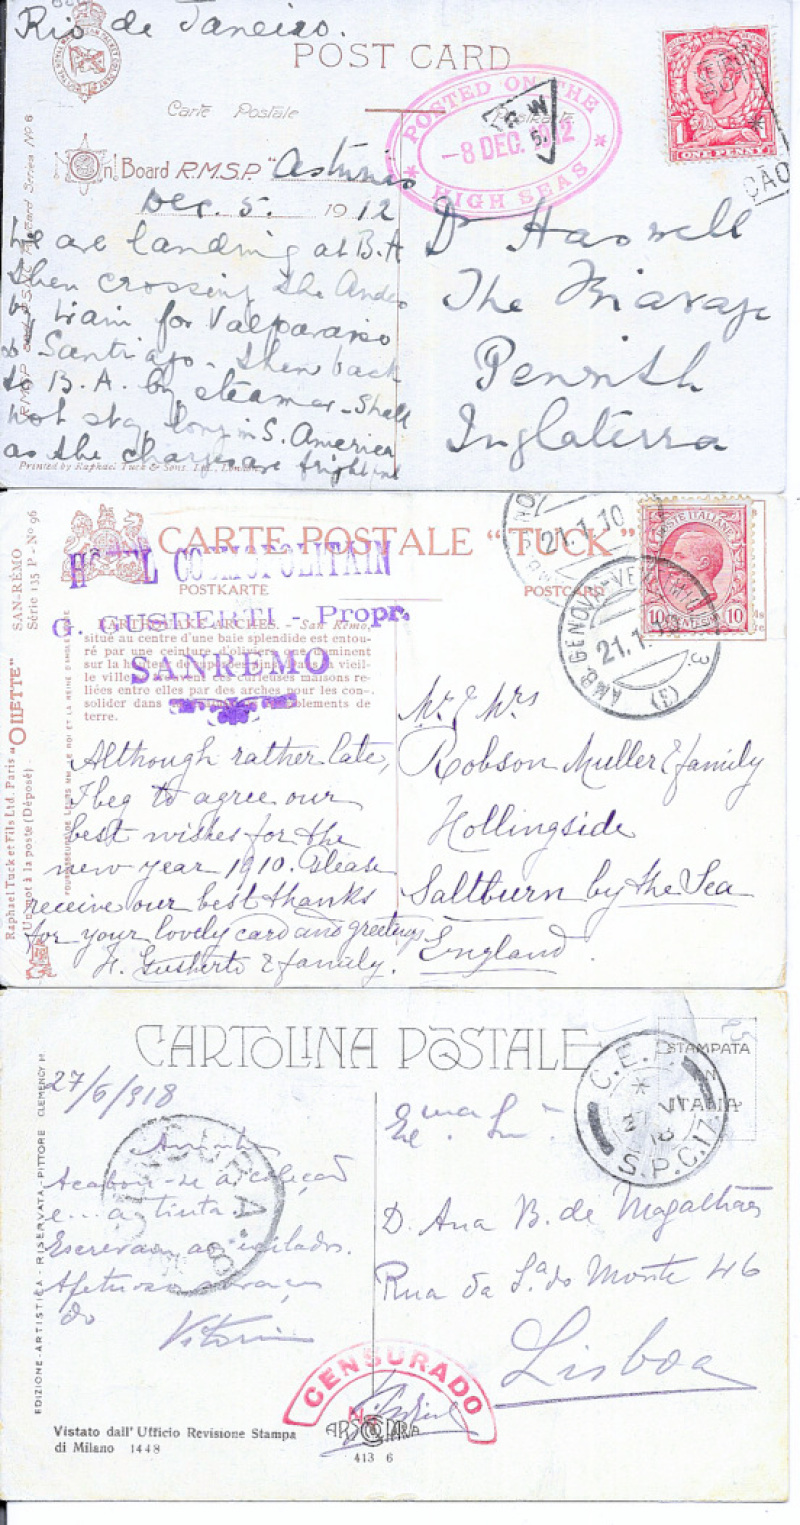 Rio de Janeiro.
POST CARD
Carte Postale
Postkarte
POSTED ON THE
-8 DEC. 1912
HIGH SEAS
ONE PENNY
On Board R.M.S.P. "Asturias
Dec. 5. 1912
We are landing at B.A
then crossing the Andes
by train for Valparaiso
& Santiago - then back
to B.A. by steamer - Shall
not stay long in S. America
as the charges are frightful
Printed by Raphael Tuck & Sons, Ltd., London
Dr Haswell
The
Penrith
Inglaterra
CARTE POSTALE "TUCK"
POSTKARTE
POSTCARD
HÔTEL COSMOPOLITAIN
G. GUSBERTI - Propr.
SANREMO
EARTHQUAKE ARCHES. - San Remo,
situé au centre d'une baie splendide est entou-
ré par une ceinture d'oliviers
sur la
le ville
reliées entre elles par des arches pour les con-
solider dans
terre.
SAN-RÉMO
Série 135 P - No 96
Raphael Tuck et Fils Ltd. Paris "OILETTE"
Un mot à la poste (Déposé)
POSTE ITALIANE
10 CENTESIMI 10
21.1.10
AMB. GENOVA-VENT
21.1.
(E)
Although rather late,
I beg to agree our
best wishes for the
new year 1910. Please
receive our best thanks
for your lovely card and greetings
H. Gusberti & family.
Mr. & Mrs
Robson Muller & family
Hollingside
Saltburn by the Sea
England.
CARTOLINA POSTALE
STAMPATA
IN
ITALIA
C.E.P.
S.P.C. 17.
27/6/918
Acabou-se a coleção
e... a tinta.
Escrevam aos exilados.
Afetuoso abraço
do
Exma. Sra.
D. Ana B. de Magalhães
Rua da Sa. do Monte 46
Lisboa
CENSURADO
EDIZIONE-ARTISTICA - RISERVATA-PITTORE CLEMENCY M
Vistato dall' Ufficio Revisione Stampa
di Milano 1448
ARS PARVA
413 6